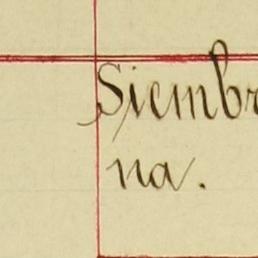 Siembr
na.